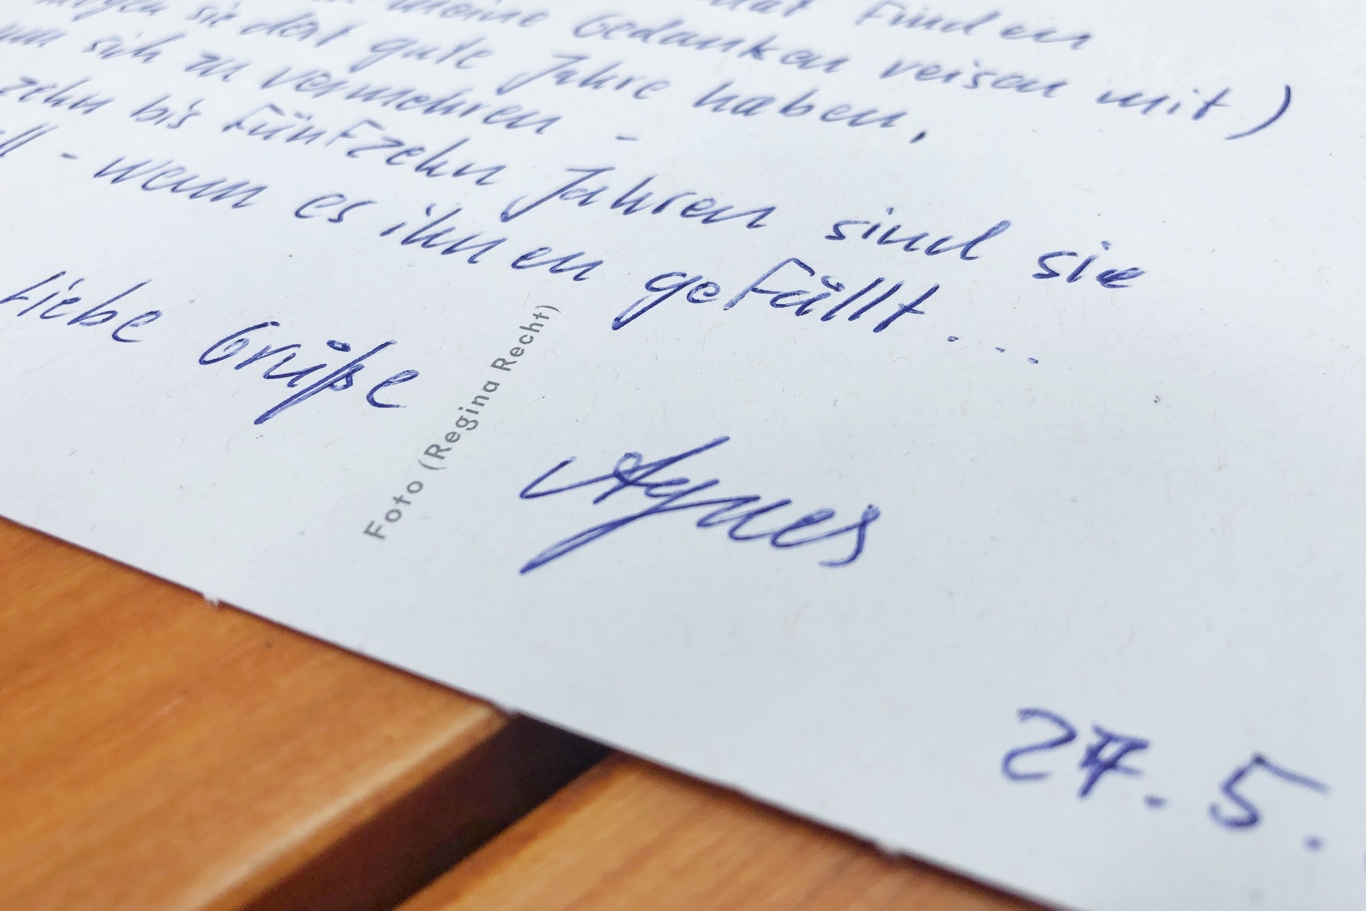 Finden
meine Gedanken reisen mit)
mögen sie dort gute Jahre haben,
um sich zu vermehren -
zehn bis fünfzehn Jahren sind sie
- wenn es ihnen gefällt...
Liebe Grüße
Foto (Regina Recht)
Agnes
27. 5.